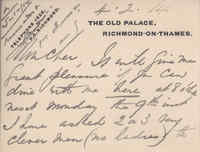 4. 2. 14
THE OLD PALACE,
RICHMOND-ON-THAMES.
Mon Cher, It will give me
great pleasure if you can
dine with me here at 8 o'clock
next Monday the 9th inst
I have asked 2 or 3 very
clever men (no ladies) to